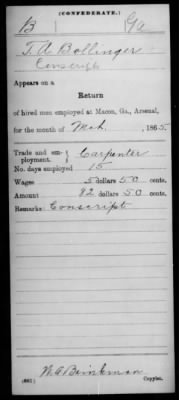 (CONFEDERATE.)
B Ga
T. A. Bollinger
Conscript
Appears on a
Return
of hired men employed at Macon, Ga., Arsenal,
for the month of Mch, 1865
Trade and em-
ployment. Carpenter
No. days employed 15
Wages 5 dollars 50 cents.
Amount 82 dollars 50 cents.
Remarks: Conscript
W. A. Brinkman
(661) Copyist.